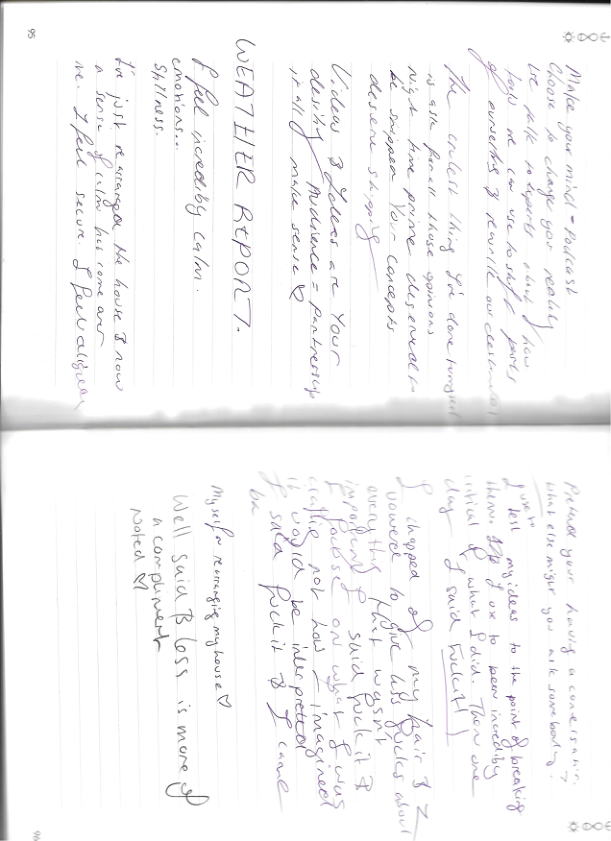 95
Make your mind = Podcast
Choose to change you reality
We talk to experts about how
tools we can use to shift parts
of ourselves & rewrite our
The coolest thing I've done tonight
is ask for all those opinions
high time prime
be snipped your concepts
deserve shipping
Videos & Ideas are Your
destiny Audience = partnership
it all makes sense ♡
WEATHER REPORT.
I feel incredibly calm.
emotions...
Stillness.
I've just rearranged the house & now
a sense of calm has come over
me. I feel secure. I feel aligned
96
Pretend your having a conversation.
what else might you ask somebody.
I use to test my ideas to the point of breaking
them. I use to been incredibly
critical of what I did. Then one
day I said Fuck it!
I chopped of my hair &
vowered to give less fucks about
everything that wasn't
important I said fuck it &
I focuse on what I was
not how I imagined
it would be interpreted
I said fuck it & I came
be
myself rearranging my house ♡
Well said & less is more of
a compliment
noted ♡